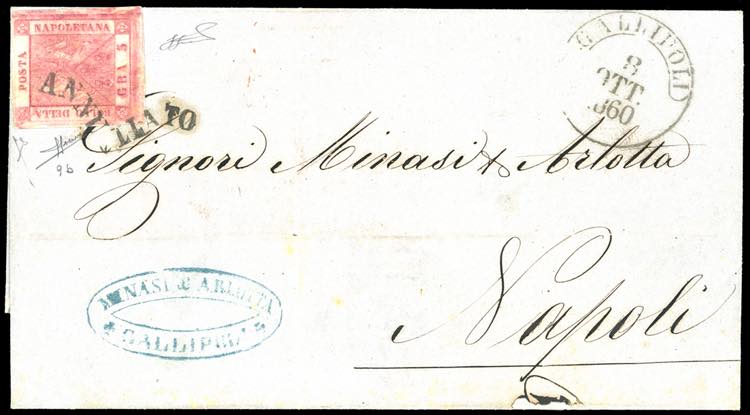 POSTA
NAPOLETANA
GRA 5
DELLA
ANNULLATO
GALLIPOLI
8
OTT.
1860
9b
Signori Minasi & Arlotta
Napoli
MINASI & ARLOTTA
GALLIPOLI